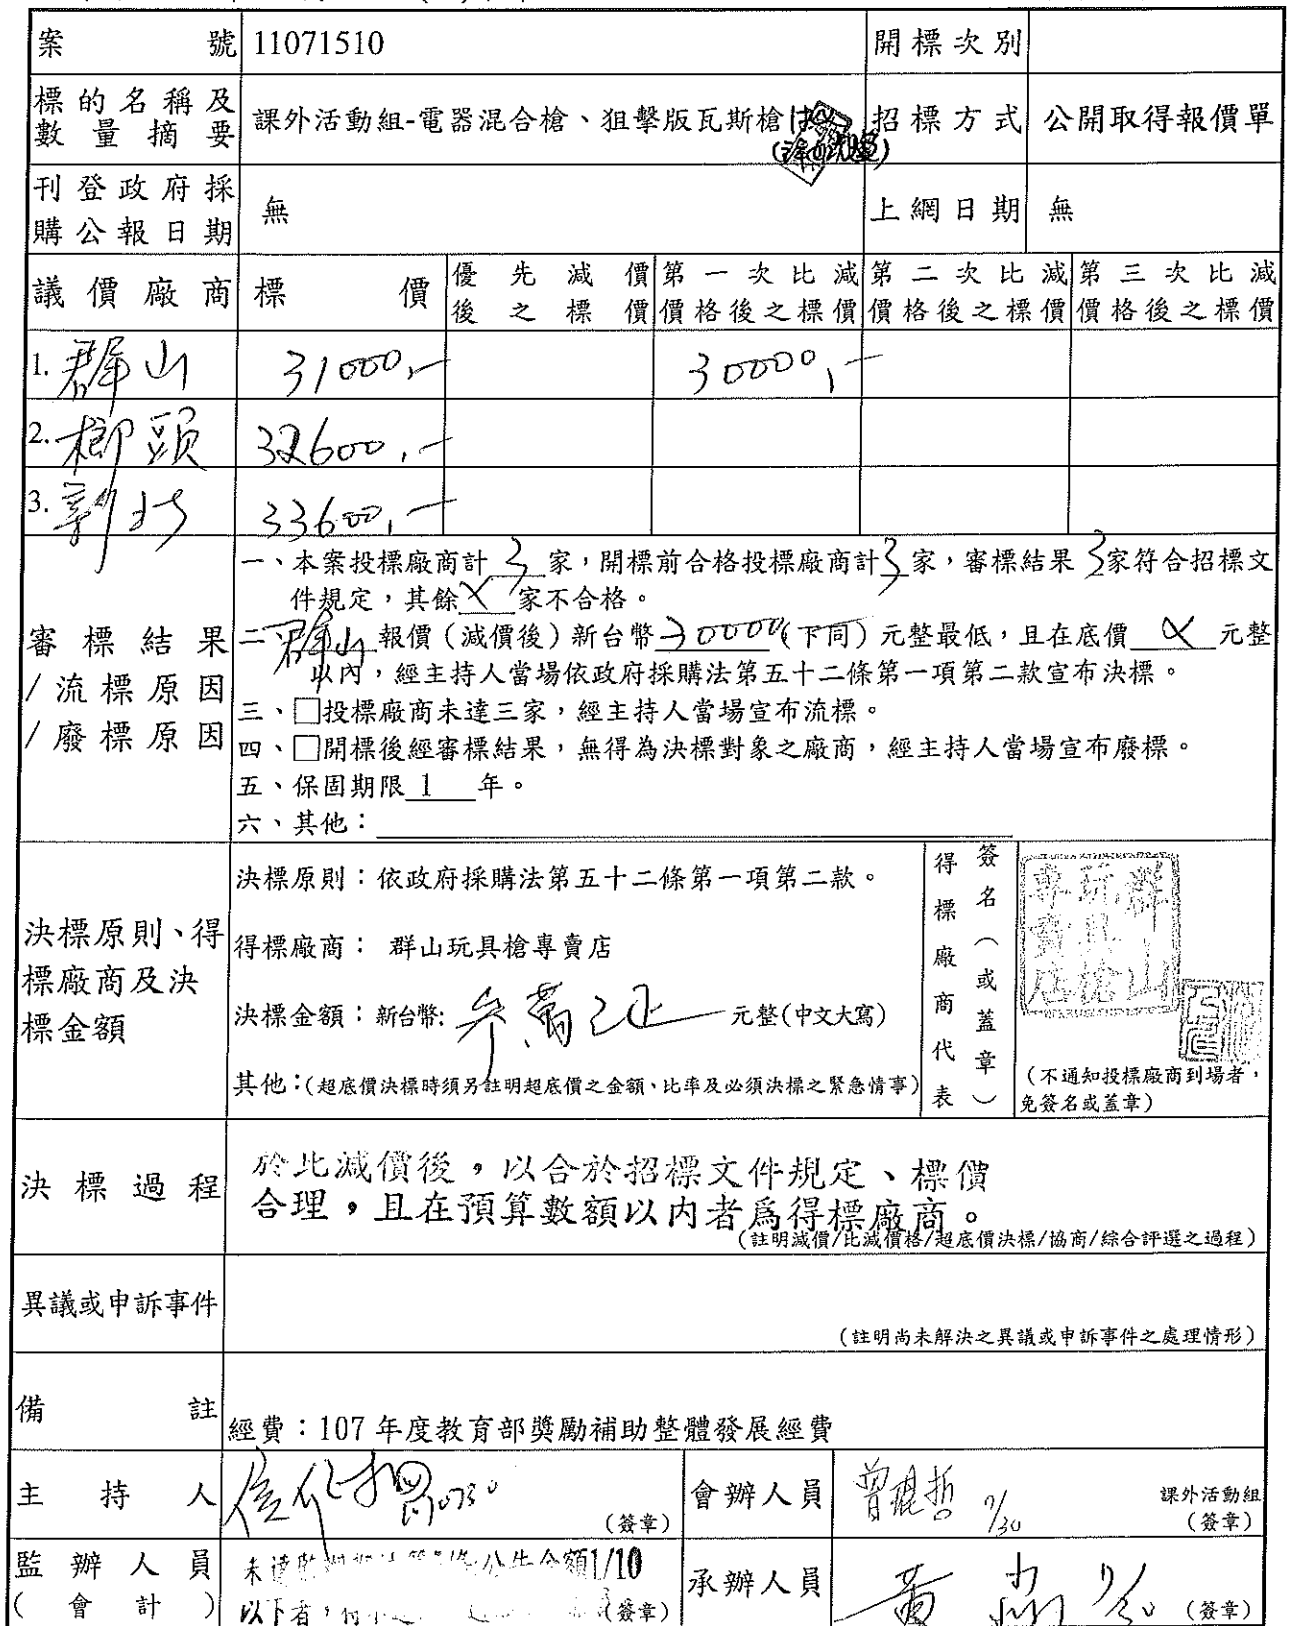 案號 11071510 開標次別
標的名稱及數量摘要 課外活動組-電器混合槍、狙擊版瓦斯槍 招標方式 公開取得報價單
刊登政府採購公報日期 無 上網日期 無
議價廠商 標價 優先減價後之標價 第一次比減價格後之標價 第二次比減價格後之標價 第三次比減價格後之標價
1. 群山 31000,- 30000,-
2. 榔頭 32600,-
3. 33600,-
審標結果/流標原因/廢標原因
一、本案投標廠商計 3 家,開標前合格投標廠商計 3 家,審標結果 3 家符合招標文
件規定,其餘 X 家不合格。
二、群山 報價(減價後)新台幣 30000 (下同)元整最低,且在底價 X 元整
以內,經主持人當場依政府採購法第五十二條第一項第二款宣布決標。
三、□投標廠商未達三家,經主持人當場宣布流標。
四、□開標後經審標結果,無得為決標對象之廠商,經主持人當場宣布廢標。
五、保固期限 1 年。
六、其他:
決標原則、得標廠商及決標金額
決標原則:依政府採購法第五十二條第一項第二款。
得標廠商: 群山玩具槍專賣店
決標金額:新台幣: 參萬元正 元整(中文大寫)
其他:(超底價決標時須另註明超底價之金額、比率及必須決標之緊急情事)
得標廠商代表簽名(或蓋章)
群山玩具槍專賣店
(不通知投標廠商到場者,
免簽名或蓋章)
決標過程
於比減價後,以合於招標文件規定、標價
合理,且在預算數額以內者爲得標廠商。
(註明減價/比減價格/超底價決標/協商/綜合評選之過程)
異議或申訴事件
(註明尚未解決之異議或申訴事件之處理情形)
備註 經費:107 年度教育部獎勵補助整體發展經費
主持人 0730 (簽章) 會辦人員 曾琨哲 7/30 課外活動組
(簽章)
監辦人員(會計) 公告金額1/10
以下者, (簽章) 承辦人員 黃 7/30 (簽章)